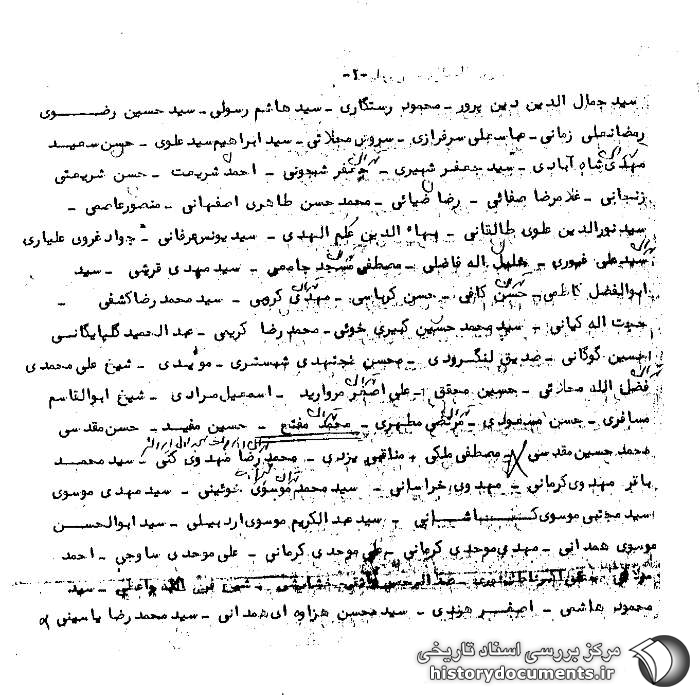 -۲-
سید جمال الدین دین پرور - محمود رستگاری - سید هاشم رسولی - سید حسین رضوی
رمضانعلی زمانی - عباسعلی سرفرازی - سروش محلاتی - سید ابراهیم سید علوی - حسن سعید
تهران
مهدی شاه آبادی - سید جعفر شهیری - جعفر شجونی - احمد شریعت - حسن شریعتی
زنجانی - غلامرضا صفائی - رضا ضیائی - محمد حسن طاهری اصفهانی - منصور عاصمی -
سید نورالدین علوی طالقانی - بهاء الدین علم الهدی - سید یونس عرفانی - جواد غروی علیاری
سید علی غیوری - جلیل اله فاضلی - مصطفی مسجد جامعی - سید مهدی قرشی - سید
ابوالفضل کاظمی - حسن کافی - حسن کرباسی - مهدی کروبی - سید محمد رضا کشفی -
حجت اله کیانی - سید محمد حسین کبیری خوئی - محمد رضا کریمی - عبدالحمید گلپایگانسی
حسین گوگانی - صدیق لنگرودی - محسن مجتهدی شبستری - موئیدی - شیخ علی محمدی
تهران
فضل الله محلاتی - حسین محقق - علی اصغر مروارید - اسمعیل مرادی - شیخ ابوالقاسم
تهران
مسافری - حسن مسعودی - مرتضی مطهری - محمد مفتح - حسین مفید - حسن مقدسی
محمد حسین مقدسی - مصطفی ملکی - مناقبی یزدی - محمد رضا مهدوی کنی - سید محمد
باقر مهدوی کرمانی - مهدوی خراسانی - سید محمد موسوی خوئینی - سید مهدی موسوی
سید مجتبی موسوی - سید عبدالکریم موسوی اردبیلی - سید ابوالحسن
موسوی همدانی - مهدی موحدی کرمانی - علی موحدی کرمانی - علی موحدی ساوجی - احمد
واعظی - سید
محمود هاشمی - اصغر هندی - سید محسن هزاوه ای همدانی - سید محمد رضا یاسینی
مرکز بررسی اسناد تاریخی
historydocuments.ir